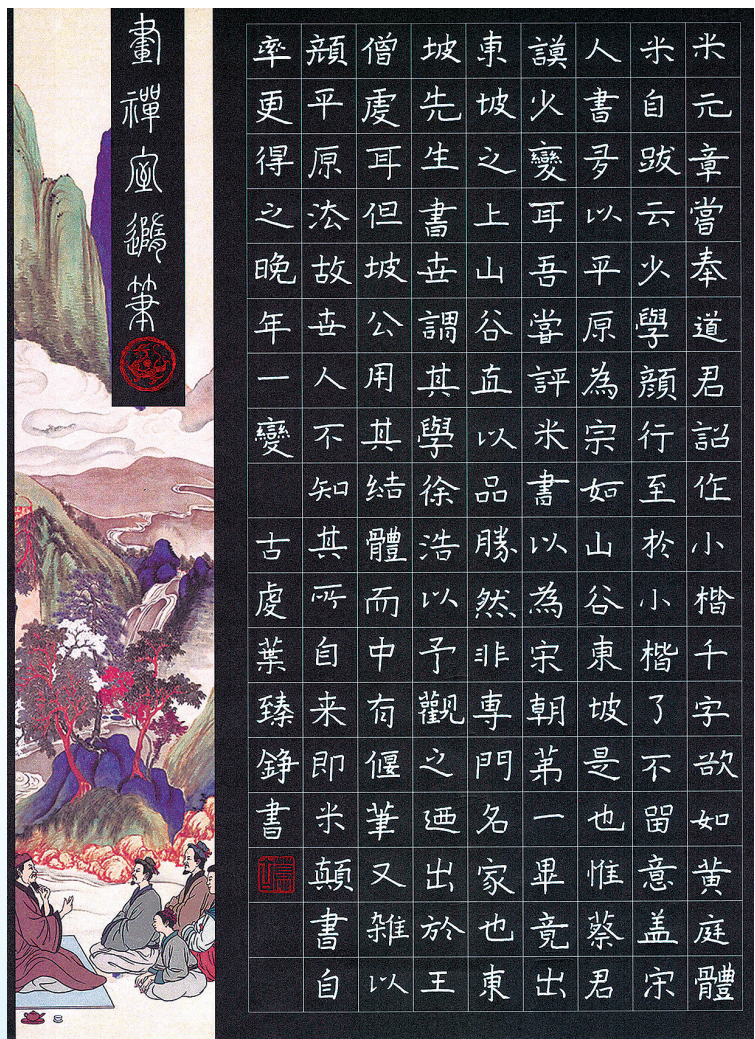 畫禪室隨筆
米元章嘗奉道君詔作小楷千字欲如黃庭體
米自跋云少學顔行至於小楷了不留意盖宋
人書多以平原為宗如山谷東坡是也惟蔡君
謨少變耳吾嘗評米書以為宋朝第一畢竟出
東坡之上山谷直以品勝然非專門名家也東
坡先生書世謂其學徐浩以予觀之迺出於王
僧虔耳但坡公用其結體而中有偃筆又雜以
顔平原法故世人不知其所自来即米顛書自
率更得之晚年一變 古虔葉臻錚書